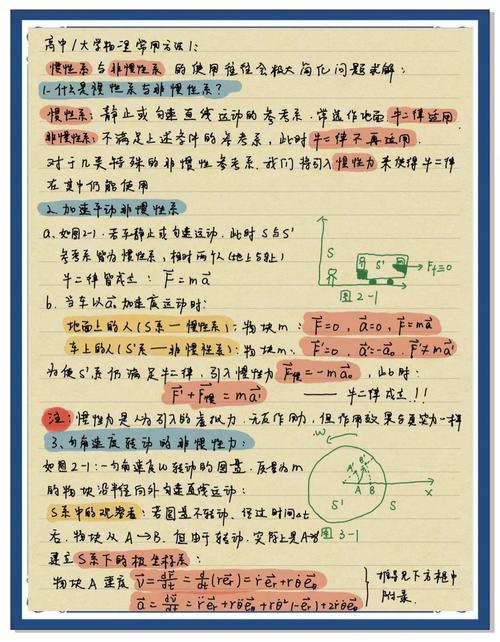 高中/大学物理常用方法1:
惯性系与非惯性系的使用往往会极大简化问题求解:
1.什么是惯性系与非惯性系?
惯性系:静止或匀速直线运动的参考系.常选作地面.牛二律适用
非惯性系:不满足上述条件的参考系,此时牛二律不再适用.
对于几类特殊的非惯性参考系.我们将引入惯性力来使得牛二律
在其中仍能使用
2.加速平动非惯性系
a.如图2-1.若车静止或匀速运动.此时S与S'
参考系皆为惯性系,相对两个人(地上与车上)
牛二律皆成立:F⃗=ma⃗
S S' F合=0
图2-1
b.当车以a⃗₀加速度运动时:
地面上的人(S系—惯性系):物块m:F⃗=0,a⃗=0,F⃗=ma⃗
车上的人(S'系—非惯性系):物块m:F⃗'=0,a⃗'=-a⃗₀.F⃗'≠ma⃗'
为使S'系仍满足牛二律,引入惯性力F⃗惯=-ma⃗₀,此时:
F⃗'+F⃗惯=ma⃗' ——牛二律成立!!
注:惯性力是人为引入的虚拟力.无反作用力,但作用效果与真实力一样
3.匀角速度转动的非惯性力:
如图2-1:一匀角速度ω转动的圆盘,质量为m
的物块沿半径向外匀速直线运动:
S系中的观察者:若圆盘不转动.经过时间Δt
后,物块从A→B.但由于转动.实际上是A→B'
ω A' B' A B S' S x
图3-1
建立S系下的极坐标系:
物块A速度 v⃗=dr⃗/dt=d/dt(re⃗r)=ṙe⃗r+rθ̇e⃗θ
a⃗=dv⃗/dt=r̈e⃗r+ṙθ̇e⃗θ+rθ̇²(-e⃗r)+2ṙθ̇e⃗θ
推导见下方框中
附录.